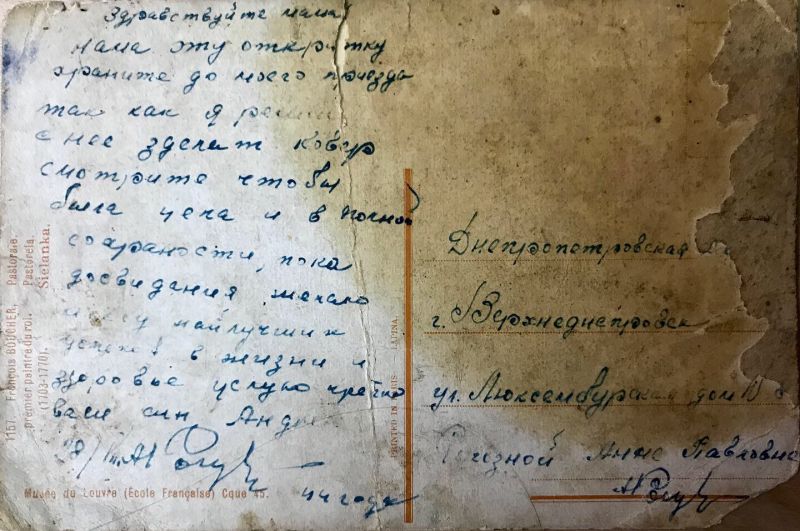 Здравствуйте мама
мама эту открытку
храните до моего приезда
так как я решил
с нее зделат ковер
смотрите чтобы
была цела и в полной
сохраности, пока
досвидания желаю
наилучших
успехов в жизни и
здоровье целую крепко
ваш син
44 года
Днепропетровская
г. Верхнеднепровск
ул. Люксембургская дом 10
Анне Павловне
1157. François BOUCHER. Pastorale
premier peintre du roi. Pastorela.
(1703-1770). Sielanka.
PRINTED IN PARIS
Musée du Louvre (École Française) Cque 45.